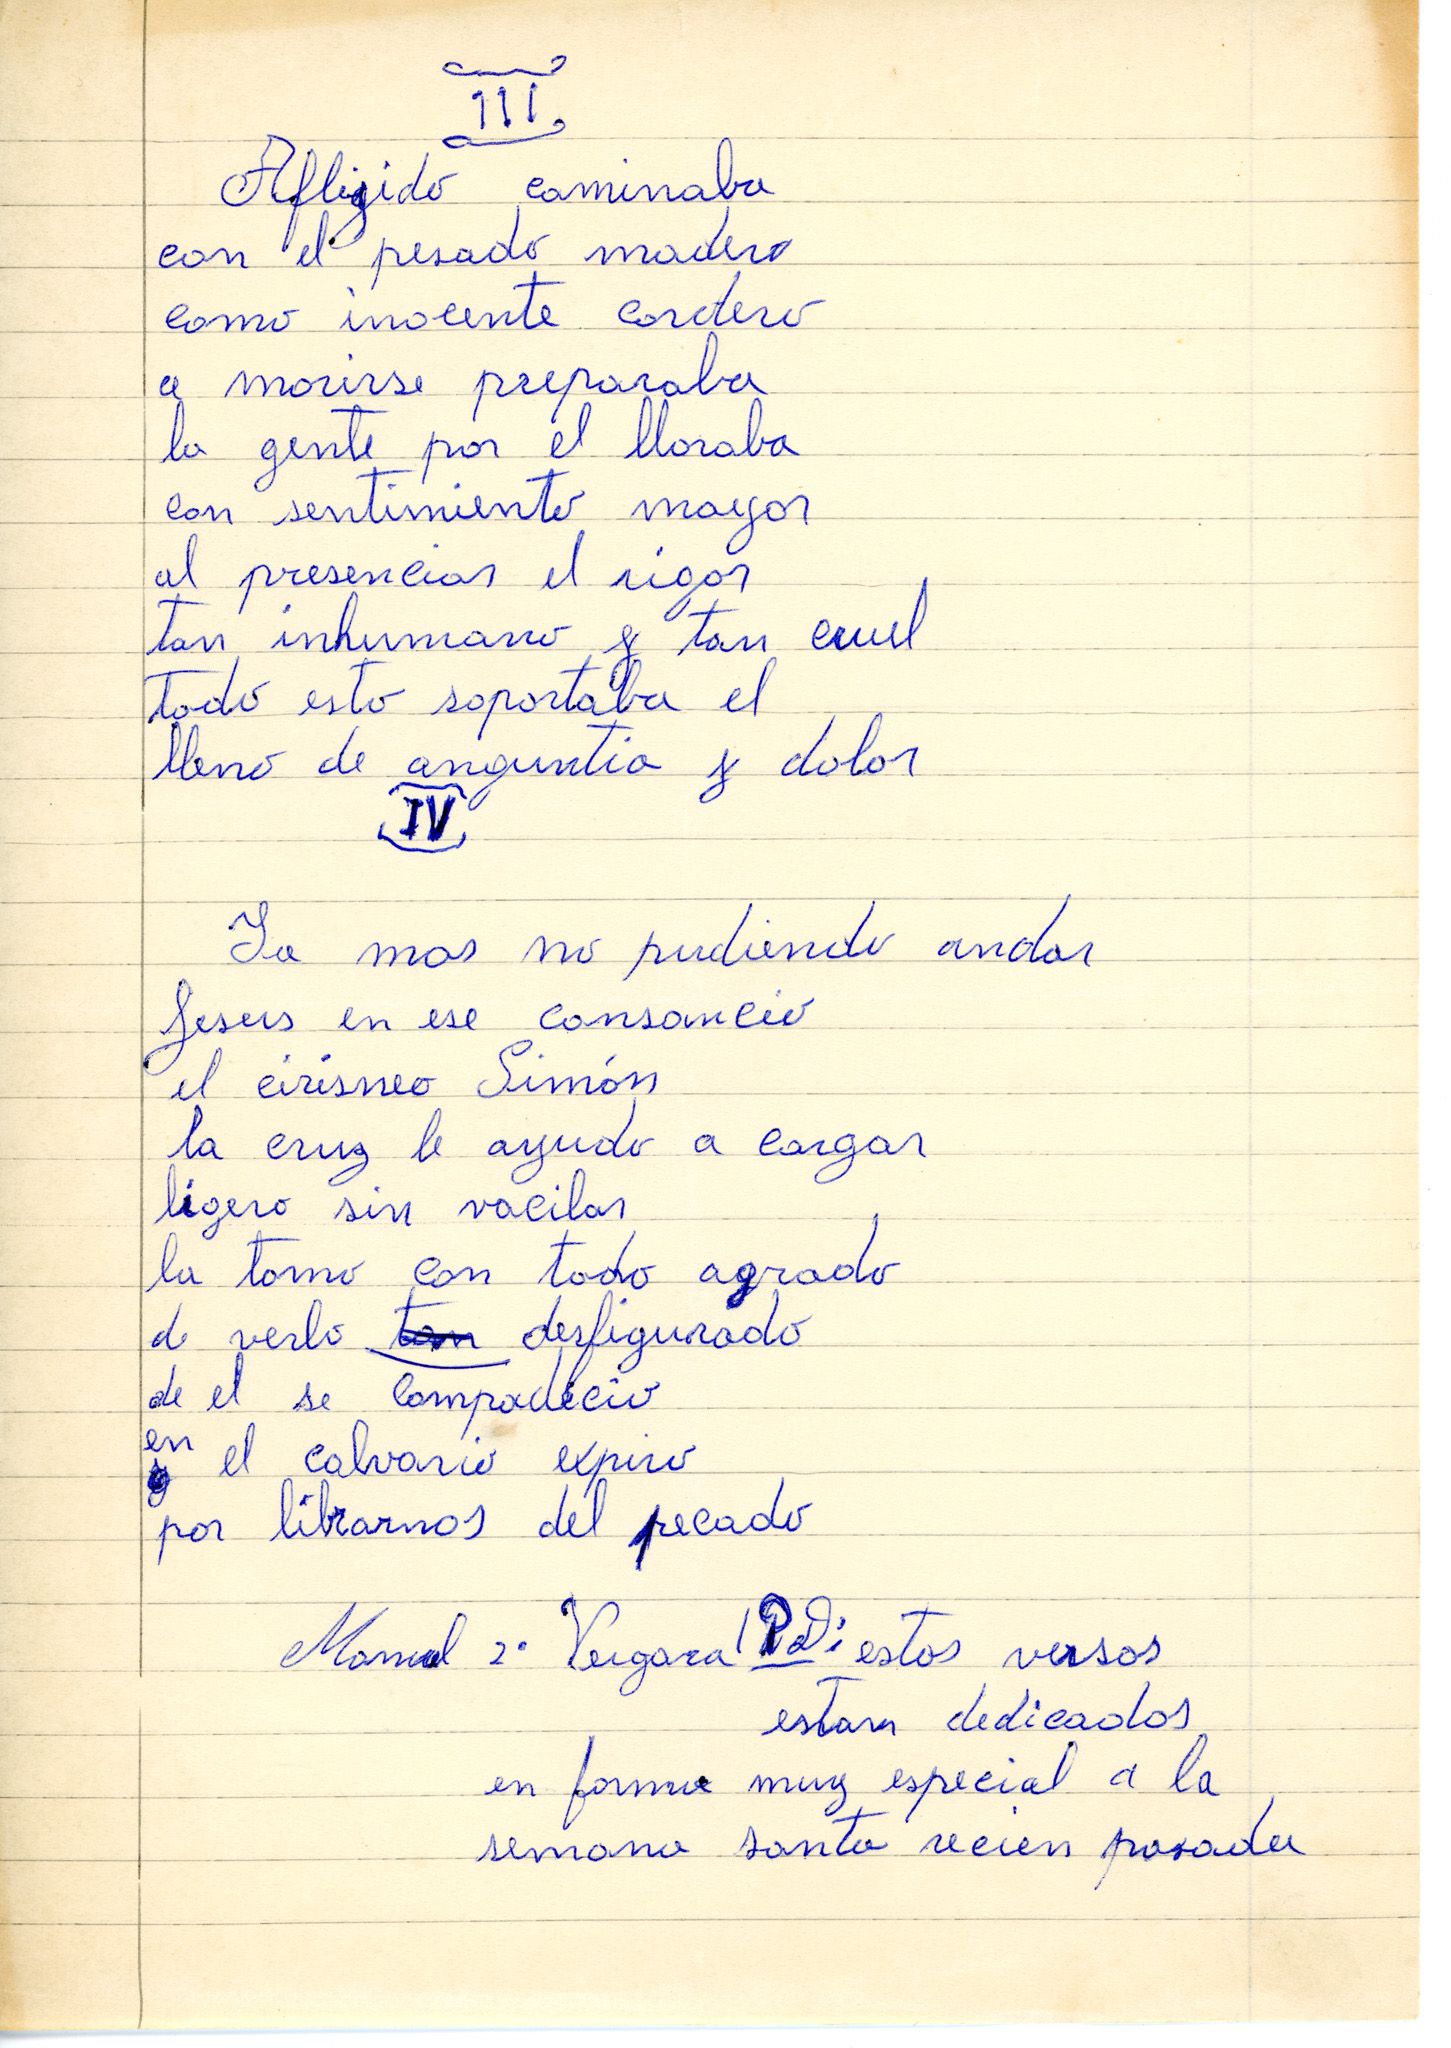 III.
Afligido caminaba
con el pesado madero
como inocente cordero
a morirse preparaba
la gente por el lloraba
con sentimiento mayor
al presenciar el rigor
tan inhumano y tan cruel
todo esto soportaba el
lleno de angustia y dolor
IV
Ya mas no pudiendo andar
Jesus en ese cansancio
el cirisneo Simón
la cruz le ayudo a cargar
ligero sin vacilar
la tomo con todo agrado
de verlo tan desfigurado
de el se compadecio
en el calvario expiro
por librarnos del pecado
Manuel 2º Vergara PdDi estos versos
estan dedicados
en forma muy especial a la
semana santa recien pasada